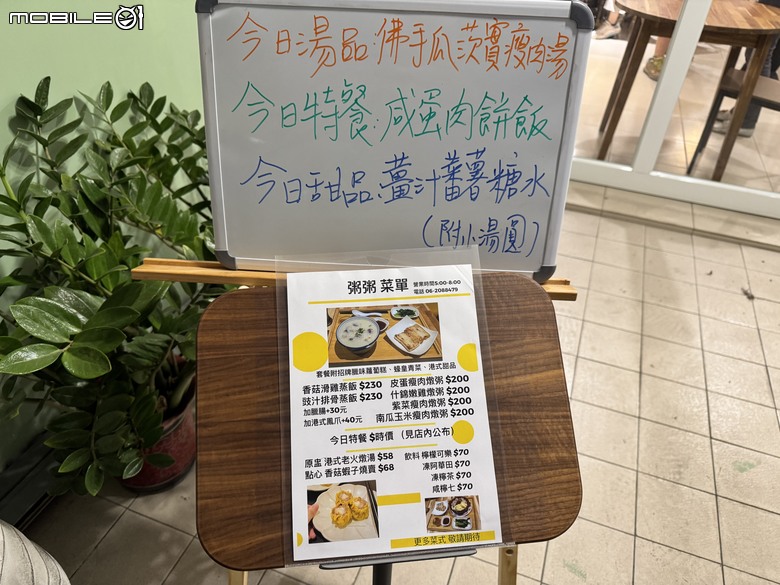 MOBILE01
今日湯品:佛手瓜茨實瘦肉湯
今日特餐:咸蛋肉餅飯
今日甜品:薑汁蕃薯糖水
(附小湯圓)
粥粥 菜單
營業時間5:00-8:00
電話 06-2088479
套餐附招牌臘味蘿蔔糕、蠔皇青菜、港式甜品
香菇滑雞蒸飯 $230
豉汁排骨蒸飯 $230
加臘腸+30元
加港式鳳爪+40元
皮蛋瘦肉燉粥 $200
什錦嫩雞燉粥 $200
紫菜瘦肉燉粥 $200
南瓜玉米瘦肉燉粥 $200
今日特餐 $時價 (見店內公布)
原盅 港式老火燉湯 $58
點心 香菇蝦子燒賣 $68
飲料 檸檬可樂 $70
凍阿華田 $70
凍檸茶 $70
咸檸七 $70
更多菜式 敬請期待